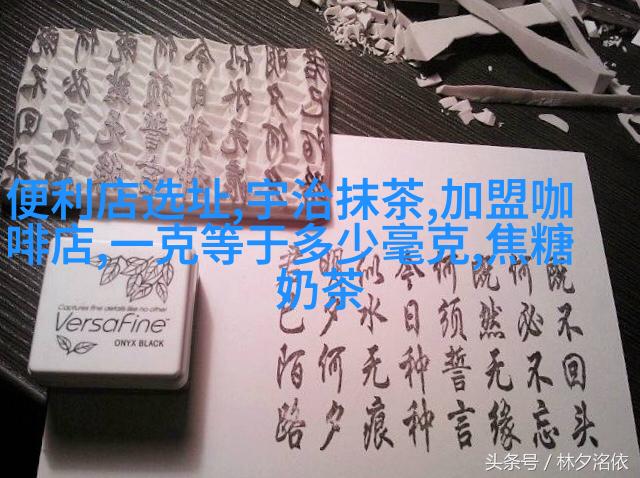 便利店选址,宇治抹茶,加盟咖
啡店,一克等于多少毫克,焦糖
奶茶
既不回头
何必不忘
既然无缘
何须誓言
今日种种
似水无痕
明夕何夕
君已陌路
Captures fine details like no other
VersaFine
ONYX BLACK
头条号 / 林夕洺依